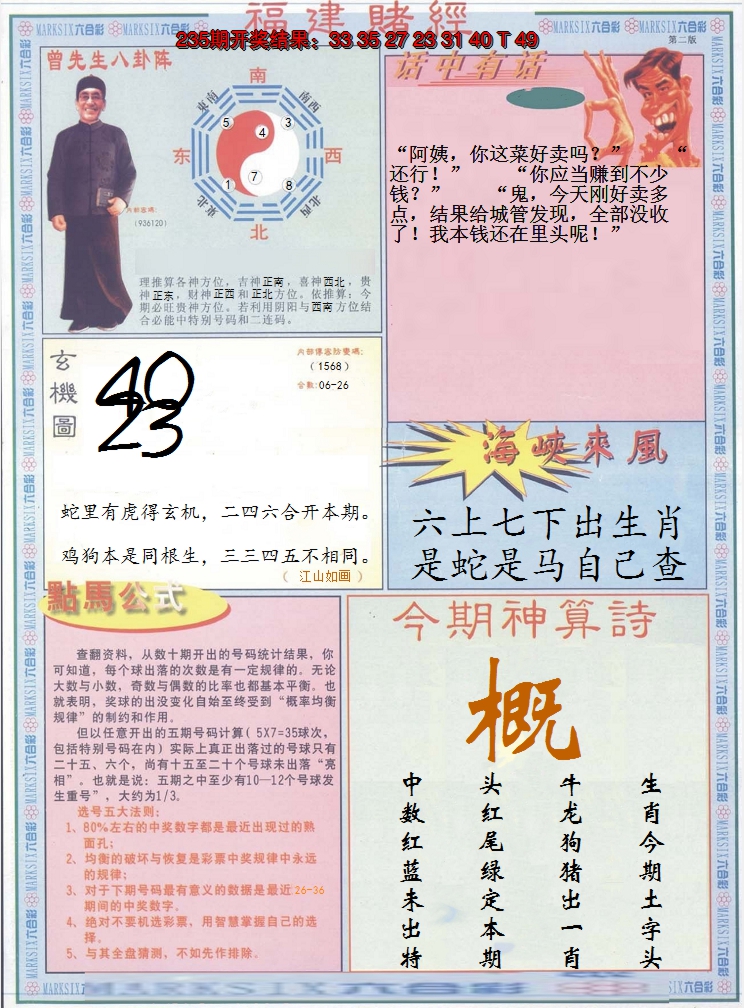 福建賭經
235期开奖结果：33 35 27 23 31 40 T 49
MARKSIX六合彩
第二版
曾先生八卦阵
南
东南
南西
5
4
3
东
西
1
7
8
东北
北西
北
内部密码：
（936120）
理推算各神方位，吉神正南，喜神西北，贵
神正东，财神正西和正北方位。依推算：今
期必旺贵神方位。若利用阴阳与西南方位结
合必能中特别号码和二连码。
话中有话
“阿姨，你这菜好卖吗？” “
还行！” “你应当赚到不少
钱？” “鬼，今天刚好卖多
点，结果给城管发现，全部没收
了！我本钱还在里头呢！”
玄機圖
40
23
（1568）
合数:06-26
蛇里有虎得玄机，二四六合开本期。
鸡狗本是同根生，三三四五不相同。
（ 江山如画 ）
海峽來風
六上七下出生肖
是蛇是马自己查
點馬公式
查翻资料，从数十期开出的号码统计结果，你
可知道，每个球出落的次数是有一定规律的。无论
大数与小数，奇数与偶数的比率也都基本平衡。也
就表明，奖球的出没变化自始至终受到“概率均衡
规律”的制约和作用。
但以任意开出的五期号码计算( 5X7=35球次，
包括特别号码在内）实际上真正出落过的号球只有
二十五、六个，尚有十五至二十个号球未出落“亮
相”。也就是说：五期之中至少有10—12个号球发
生重号”，大约为1/3。
选号五大法则：
1、80%左右的中奖数字都是最近出现过的熟
面孔；
2、均衡的破坏与恢复是彩票中奖规律中永远
的规律；
3、对于下期号码最有意义的数据是最近26-36
期间的中奖数字。
4、绝对不要机选彩票，用智慧掌握自己的选
择。
5、与其全盘猜测，不如先作排除。
今期神算詩
概
生肖今期土字头
牛龙狗猪出一肖
头红尾绿定本期
中数红蓝未出特